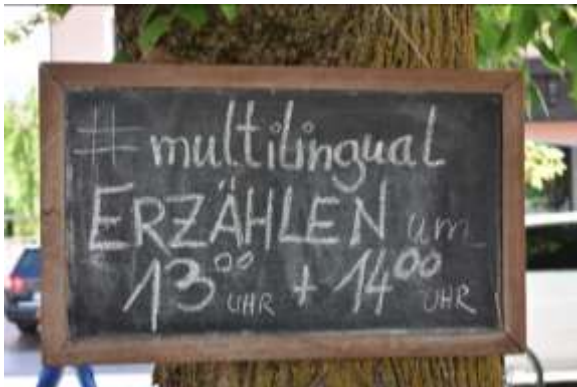 #multilingual
ERZÄHLEN um
13⁰⁰ UHR + 14⁰⁰ UHR